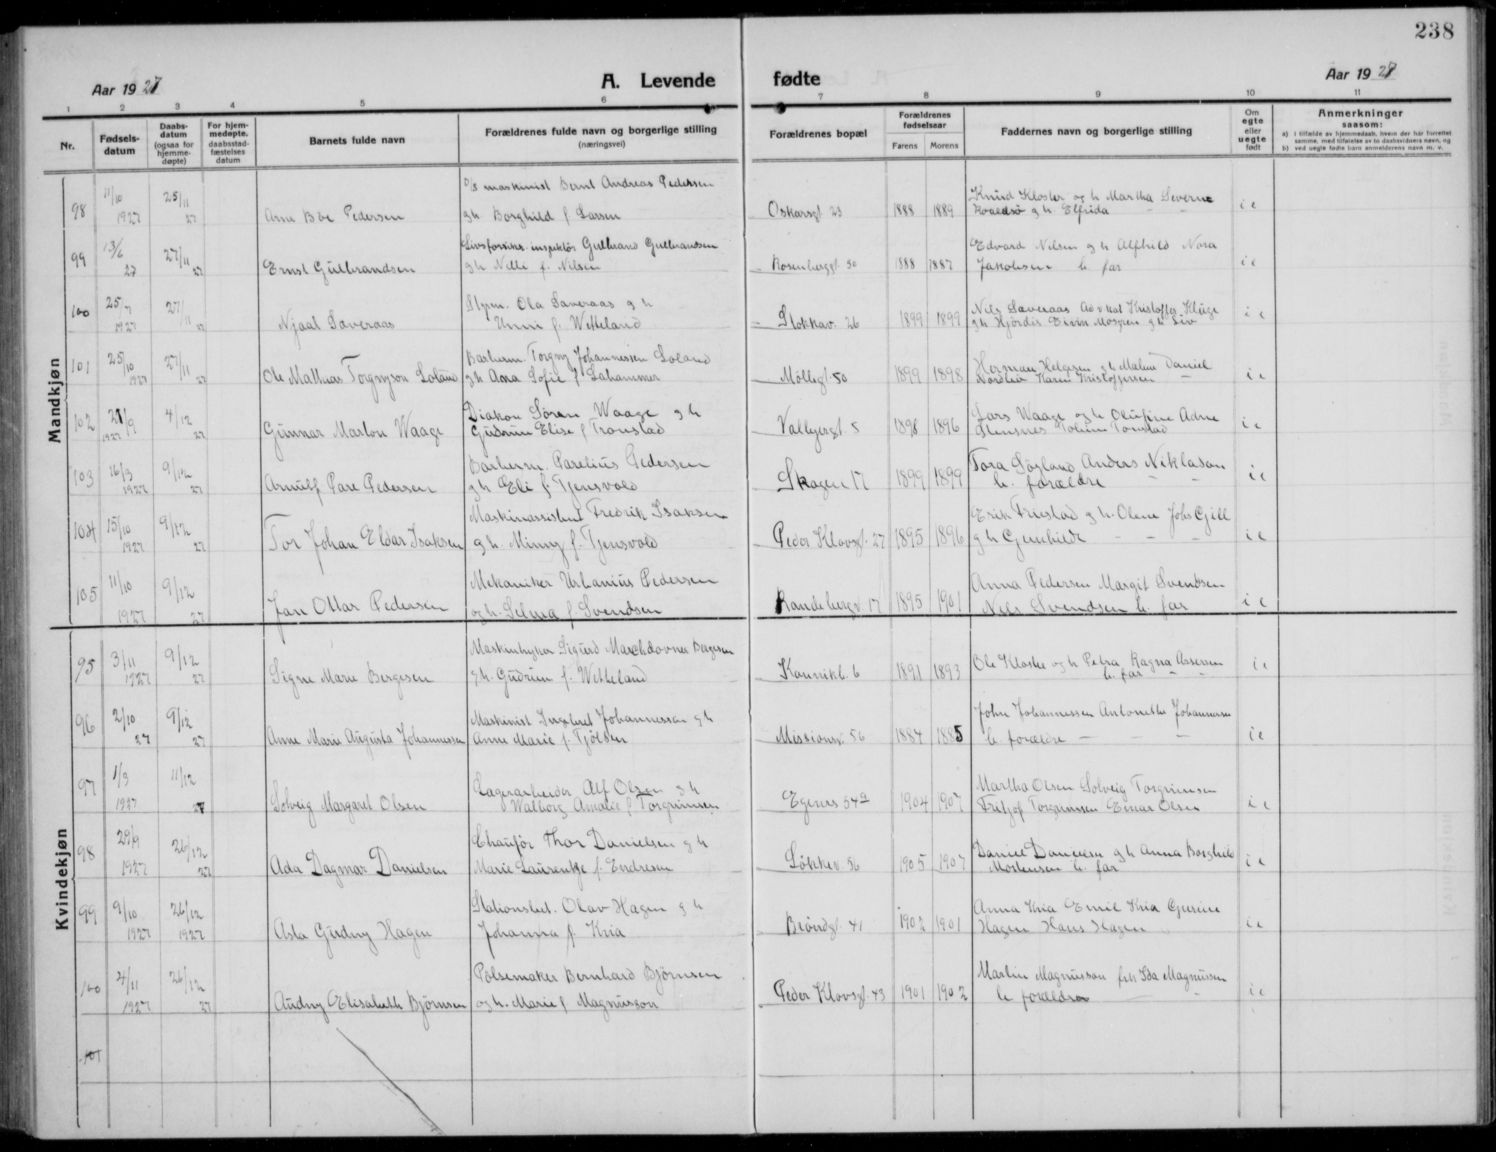 238
Aar 1927
A. Levende fødte
Aar 1928
1 2 3 4 5 6 7 8 9 10 11
Nr.
Fødsels-
datum
Daabs-
datum
(ogsaa for
hjemme-
døpte)
For hjem-
medøpte.
daabsstad-
fæstelses
datum
Barnets fulde navn
Forældrenes fulde navn og borgerlige stilling
(næringsvei)
Forældrenes bopæl
Forældrenes
fødselsaar
Farens Morens
Faddernes navn og borgerlige stilling
Om
egte
eller
uegte
født
Anmerkninger
saasom:
a) i tilfælde av hjemmedaab, hvem der har forrettet
samme, med tilføielse av to daabsvidners navn, og
b) ved uegte fødte barn anmelderens navn m. v.
Mandkjøn
98 11/10 1927 25/11 27 Arne Boe Pedersen
D/S maskinist Bernt Andreas Pedersen
g h Borghild f Larsen
Oskarsgt 23 1888 1889
Knud Kloster og h Martha Severine
g h Elfrida - - i e
99 13/6 27 27/11 27 Ernst Gulbrandsen
Livsforsikr. inspektør Gulbrand Gulbrandsen
g h Nelli f. Nilsen
Rosenberggt 50 1888 1887
Edvard Nilsen g h Alfhild Nora
Jakobsen b. far i e
100 25/7 1927 27/11 27 Njaal Saveraas
Styrm. Ola Saveraas g h
Unni f. Wetteland
Stokkav. 26 1899 1899
Nils Saveraas Advokat Kristoffer Kluge
g h Hjördis Einar Mosgren g h Liv i e
101 25/10 1927 27/11 27 Ole Mathias Torgnyson Loland
Baskerm. Torgny Johannessen Loland
g h Ana Sofie f Lahammer
Møllegt 50 1899 1898
Herman Helgesen g h Malene Daniel
Nordbø Karen Kristoffersen - i e
102 21/9 1927 4/12 27 Gunnar Marton Waage
Diakon Søren Waage g h
Gudrun Elise f Tronstad
Valbergt. 5 1898 1896
Lars Waage og h Olufine Adne
Stensnes Toline Tonstad i e
103 16/3 1927 9/12 27 Arnulf Pare Pedersen
Barberm. Parelius Pedersen
g h Eli f. Tjensvold
Skagen 17 1899 1899
Tora Sögland Anders Niklasen
b. forældre - - i e
104 15/10 1927 9/12 27 Tor Johan Eldar Isaksen
Maskinassistent Fredrik Isaksen
g h. Minny f. Tjensvold
Peder Klowsgt. 27 1895 1896
Erik Friestad g h. Olene Johs Gjill
g h Gunhilde - - - i e
105 11/10 1927 9/12 27 Jan Ottar Pedersen
Mekaniker Urbanius Pedersen
og h. Selma f Svendsen
Randebergv. 17 1895 1901
Anna Pedersen Margit Svendsen
Nils Svendsen b. far i e
Kvindekjøn
95 3/11 1927 9/12 27 Signe Marie Bergesen
Sigurd Bergesen
g h. Gudrun f. Wetteland
Kannikb. 6 1891 1893
Ole Kloster og h Petra Ragna Assersen
b. far - - i e
96 2/10 27 9/12 27 Anne Marie Augusta Johannessen
Maskinist Ingebret Johannessen g h
Anne Marie f. Tjölsen
Missionsv. 56 1884 1885
John Johannessen Antonette Johannessen
b. forældre - - - i e
97 1/9 1927 11/12 27 Solveig Margaret Olsen
Lagerarbeider Alf Olsen g h
Walborg Amalie f Torgrimsen
Egenes 54a 1904 1907
Martha Olsen Solveig Torgrimsen
Fritjof Torgrimsen Einar Olsen i e
98 29/9 1927 26/12 27 Ada Dagmar Danielsen
Chaufør Thor Danielsen g h
Marie Laurentse f. Endresen
Løkkev. 56 1905 1907
Daniel Danielsen g h Anna Borghild
Mortensen b. far i e
99 9/10 1927 26/12 1927 Asta Gudny Hagen
Stationsbet. Olav Hagen g h
Johanna f. Kria
Brøndgt. 41 1902 1901
Anna Kria Emil Kria Gurine
Hagen Hans Hagen i e
100 4/11 1927 26/12 27 Audny Elisabeth Björnsen
Pølsemaker Bernhard Björnsen
og h. Marie f Magnusson
Peder Klowsgt. 43 1901 1902
Martin Magnusson frk Ida Magnussen
b. forældre - i e
101